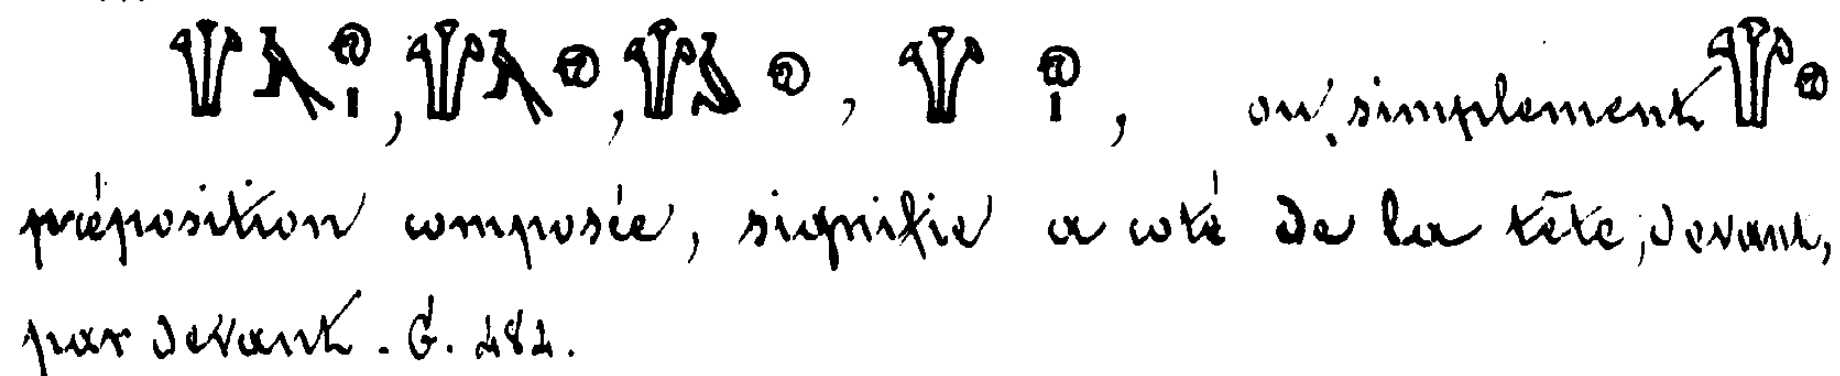 ou, simplement
préposition composée, signifie a coté de la tête, devant,
par devant. G.